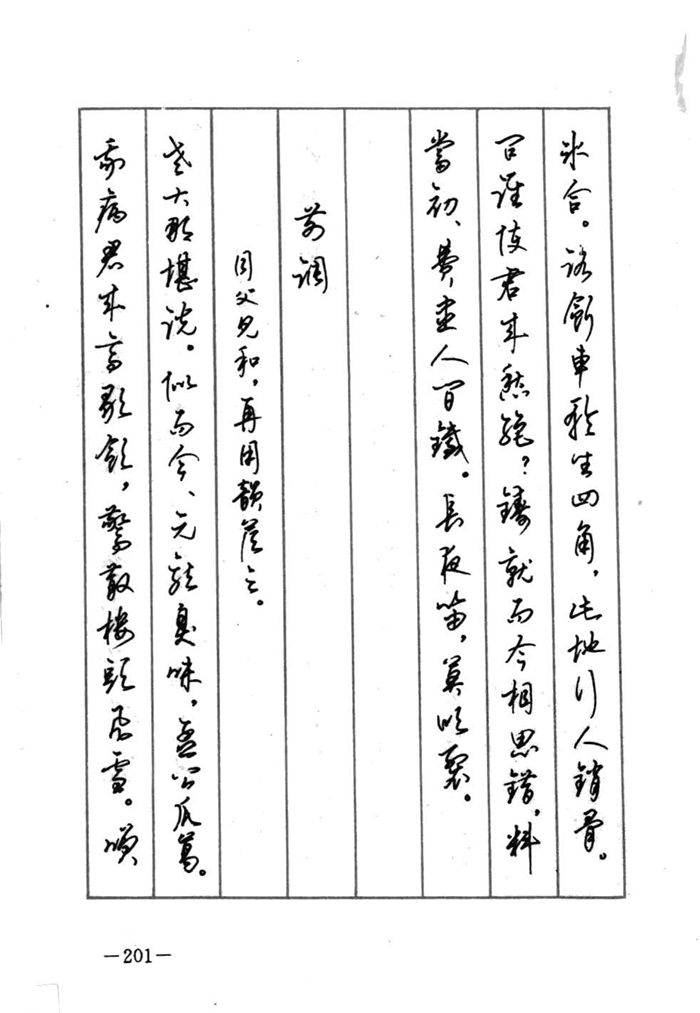 冰合。路斷車輪生四角，此地行人銷骨。
問誰使君來愁絕？鑄就而今相思錯，料
當初、費盡人間鐵。長夜笛，莫吹裂。
前調
同父見和，再用韻答之。
老大那堪說。似而今、元龍臭味，孟公瓜葛。
我病君來高歌飲，驚散樓頭飛雪。笑
—201—